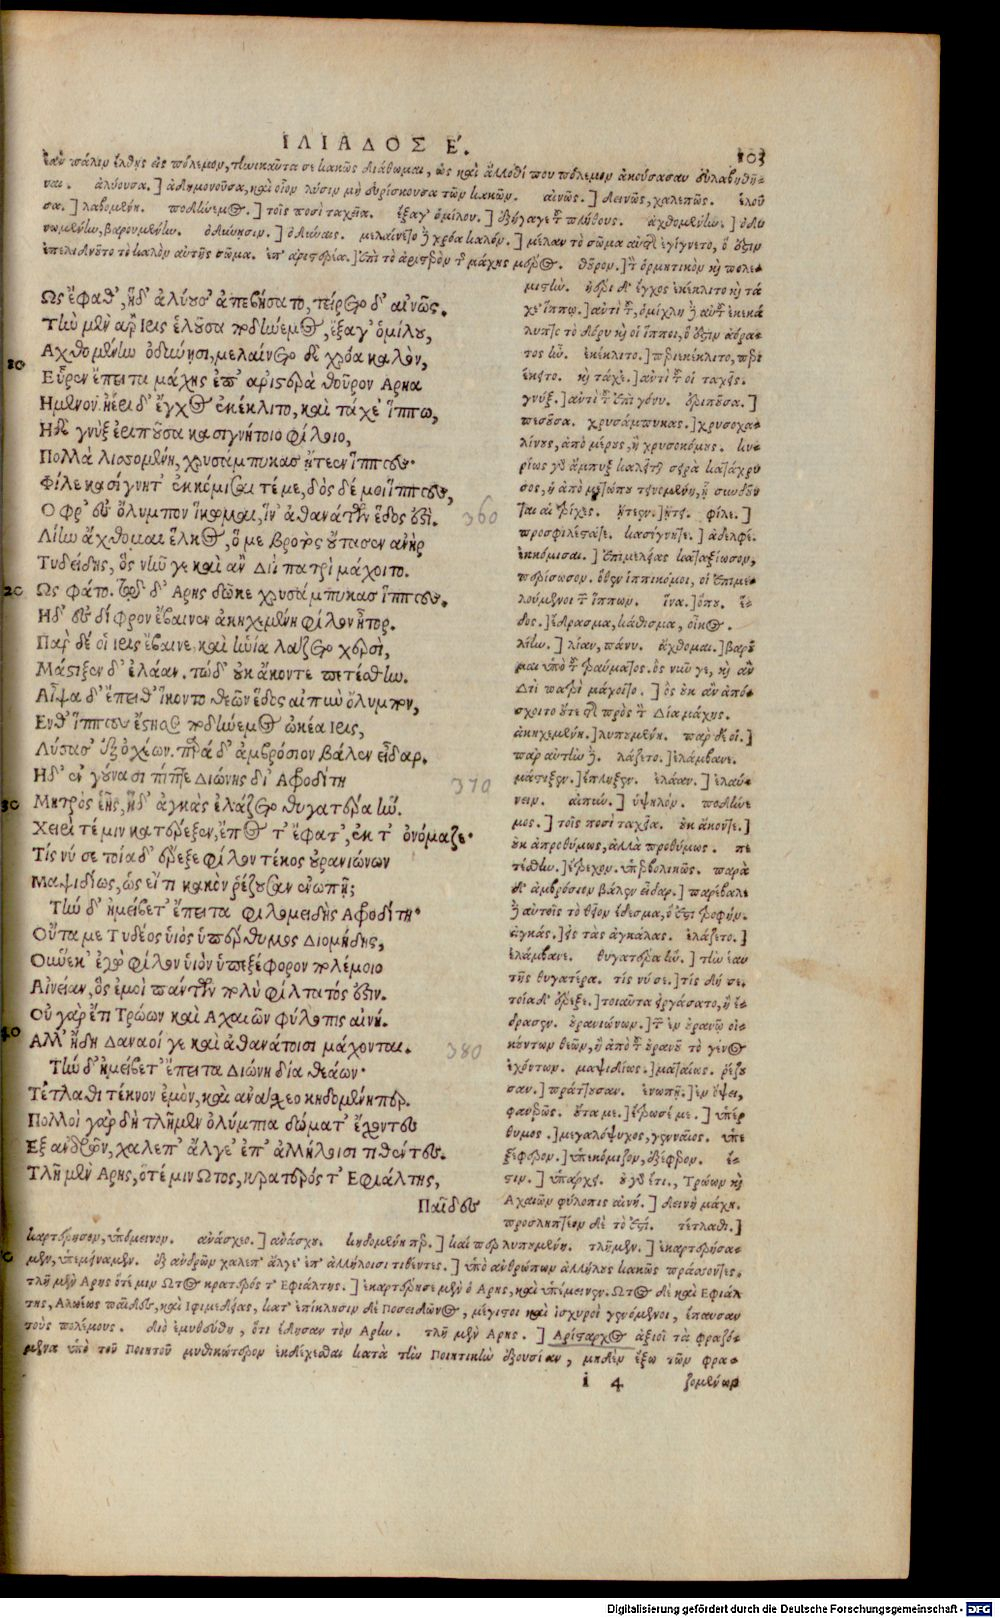 ΙΛΙΑΔΟΣ Ε. 103
ἐὰν πάλιν ἔλθῃς εἰς πόλεμον, τηνικαῦτα σε κακῶς διάθωμαι, ὡς καὶ ἄλλοθί που πόλεμον ἀκούσασαν εὐλαβηθῆ-
ναι. ἀλύουσα.] ἀδημονοῦσα, καὶ οἷον λύσιν μὴ εὑρίσκουσα τῶν κακῶν. αἰνῶς.] δεινῶς, χαλεπῶς. ἑλοῦ
σα.] λαβομένη. ποδήνεμος.] τοῖς ποσὶ ταχεῖα. ἔξαγ' ὁμίλου.] ἐξήγαγε τοῦ πλήθους. ἀχθομένην.] ὀδυ
νωμένην, βαρουμένην. ὀδύνῃσιν.] ὀδύναις. μελαίνετο δὲ χρόα καλόν.] μέλαν τὸ σῶμα αὐτῆς ἐγίγνετο, ὅ ἐστιν
ἐπελιδνοῦτο τὸ καλὸν αὐτῆς σῶμα. ἐπ' ἀριστερά.] ἐπὶ τὸ ἀριστερὸν τῆς μάχης μέρος. θοῦρον.] τὸν ὁρμητικὸν καὶ πολε-
Ὣς ἔφαθ', ἡ δ' ἀλύουσ' ἀπεβήσατο, τείρετο δ' αἰνῶς.
Τὴν μὲν ἄρ' Ἶρις ἑλοῦσα ποδήνεμος, ἔξαγ' ὁμίλου,
Ἀχθομένην ὀδύνῃσι, μελαίνετο δὲ χρόα καλόν,
10
Εὗρεν ἔπειτα μάχης ἐπ' ἀριστερὰ θοῦρον Ἄρηα
Ἥμενον. ἠέρι δ' ἔγχος ἐκέκλιτο, καὶ ταχέ' ἵππω,
Ἡ δὲ γνὺξ ἐριποῦσα κασιγνήτοιο φίλοιο,
Πολλὰ λισσομένη, χρυσάμπυκας ᾔτεεν ἵππους·
Φίλε κασίγνητ' ἐκκόμισαι τέ με, δὸς δέ μοι ἵππους,
Ὄφρ' ἐς ὄλυμπον ἵκωμαι, ἵν' ἀθανάτων ἕδος ἐστί. 360
Λίην ἄχθομαι ἕλκος, ὅ με βροτὸς οὔτασεν ἀνὴρ
Τυδείδης, ὃς νῦν γε καὶ ἂν Διὶ πατρὶ μάχοιτο.
20 Ὣς φάτο. τῇ δ' ἄρ' Ἄρης δῶκε χρυσάμπυκας ἵππους.
Ἡ δ' ἐς δίφρον ἔβαινεν ἀκηχεμένη φίλον ἦτορ.
Πὰρ δέ οἱ Ἶρις ἔβαινε, καὶ ἡνία λάζετο χερσὶ,
Μάστιξεν δ' ἐλάαν. τὼ δ' οὐκ ἄκοντε πετέσθην.
Αἶψα δ' ἔπειθ' ἵκοντο θεῶν ἕδος αἰπὺν ὄλυμπον,
Ἔνθ' ἵππους ἔστησε ποδήνεμος ὠκέα Ἶρις,
Λύσασ' ἐξ ὀχέων. παρὰ δ' ἀμβρόσιον βάλεν εἶδαρ.
Ἡ δ' ἐν γούνασι πῖπτε Διώνης δῖ' Ἀφροδίτη 370
30 Μητρὸς ἑῆς, ἡ δ' ἀγκὰς ἐλάζετο θυγατέρα ἥν.
Χειρί τέ μιν κατέρεξεν, ἔπος τ' ἔφατ', ἔκ τ' ὀνόμαζε·
Τίς νύ σε τοιάδ' ἔρεξε φίλον τέκος οὐρανιώνων
Μαψιδίως, ὡς εἴ τι κακὸν ῥέζουσαν ἐνωπῇ;
Τὴν δ' ἠμείβετ' ἔπειτα φιλομειδὴς Ἀφροδίτη·
Οὖτά με Τυδέος ὑιὸς ὑπέρθυμος Διομήδης,
Οὕνεκ' ἐγὼ φίλον ὑιὸν ὑπεξέφερον πολέμοιο
Αἰνείαν, ὃς ἐμοὶ πάντων πολὺ φίλτατός ἐστιν.
Οὐ γὰρ ἔτι Τρώων καὶ Ἀχαιῶν φύλοπις αἰνή.
40 Ἀλλ' ἤδη Δαναοί γε καὶ ἀθανάτοισι μάχονται. 380
Τὴν δ' ἠμείβετ' ἔπειτα Διώνη δῖα θεάων·
Τέτλαθι τέκνον ἐμὸν, καὶ ἀνάσχεο κηδομένη περ.
Πολλοὶ γὰρ δὴ τλῆμεν ὀλύμπια δώματ' ἔχοντες
Ἐξ ἀνδρῶν, χαλέπ' ἄλγε' ἐπ' ἀλλήλοισι τιθέντες.
Τλῆ μὲν Ἄρης, ὅτέ μιν Ὦτος, κρατερός τ' Ἐφιάλτης,
Παῖδες
μιστήν. ἠέρι δ' ἔγχος ἐκέκλιτο καὶ τα
χέ' ἵππω.] ἀντὶ τοῦ, ὁμίχλῃ δὲ αὐτοῦ ἐκεκά
λυπτο τὸ δόρυ καὶ οἱ ἵπποι, ὅ ἐστιν ἀόρα-
τος ἦν. ἐκέκλιτο.] περιεκέκλιτο, περι
έκειτο. καὶ ταχέε.] ἀντὶ τοῦ οἱ ταχεῖς.
γνύξ.] ἀντὶ τοῦ ἐπὶ γόνυ. ἐριποῦσα.]
πεσοῦσα. χρυσάμπυκας.] χρυσοχα-
λίνους, ἀπὸ μέρους, ἢ χρυσοκόμους. κυ-
ρίως γὸ ἄμπυξ καλεῖται σειρὰ κατάχρυ
σος, ἡ ἀπὸ μετώπου τεινομένη, ᾗ συνδέον
ται αἱ τρίχες. ᾔτεεν.] ᾔτει. φίλε.]
προσφιλέστατε. κασίγνητε.] ἀδελφέ.
ἐκκόμισαι.] ἐπιμελείας καταξίωσον,
πόρισωσον. ὅθεν ἱππικόμοι, οἱ ἐπιμε-
λούμενοι τῶν ἵππων. ἵνα.] ὅπου. ἕ-
δος.] ἕδρασμα, κάθισμα, οἶκος.
λίην.] λίαν, πάνυ. ἄχθομαι.] βαροῦ
μαι ὑπὸ τοῦ τραύματος. ὃς νῦν γε, καὶ ἂν
Διὶ πατρὶ μάχοιτο.] ὃς οὐκ ἂν ἀπό-
σχοιτο οὔτε τῆς πρὸς τὸν Δία μάχης.
ἀκηχεμένη.] λυπουμένη. πὰρ δέ οἱ.]
παρ' αὐτὴν δέ. λάζετο.] ἐλάμβανε.
μάστιξεν.] ἔπληξεν. ἐλάαν.] ἐλαύ-
νειν. αἰπύν.] ὑψηλόν. ποδήνε
μος.] τοῖς ποσὶ ταχεῖα. οὐκ ἄκοντε.]
οὐκ ἀπροθύμως, ἀλλὰ προθύμως. πε
τέσθην.] ἔτρεχον. ὑπερβολικῶς. παρὰ
δ' ἀμβρόσιον βάλεν εἶδαρ.] παρέβαλε
δὲ αὐτοῖς τὸ θεῖον ἔδεσμα, ὅ ἐστι τροφήν.
ἀγκάς.] εἰς τὰς ἀγκάλας. ἐλάζετο.]
ἐλάμβανε. θυγατέρα ἥν.] τὴν ἑαυ
τῆς θυγατέρα. τίς νύ σε.] τίς δή σε.
τοιάδ' ἔρεξε.] τοιαῦτα εἰργάσατο, ἢ ἔ-
δρασεν. οὐρανιώνων.] τῶν ἐν οὐρανῷ οἰ-
κούντων θεῶν, ἢ ἀπὸ τοῦ οὐρανοῦ τὸ γένος
ἐχόντων. μαψιδίως.] ματαίως. ῥέζου
σαν.] πράττουσαν. ἐνωπῇ.] ἐν ὄψει,
φανερῶς. οὖτά με.] ἔτρωσέ με.] ὑπέρ
θυμος.] μεγαλόψυχος, γενναῖος. ὑπε
ξέφερον.] ὑπεκόμιζον, ἐξέφερον. ἔ-
στιν.] ὑπάρχει. οὐ γὸ ἔτι, Τρώων καὶ
Ἀχαιῶν φύλοπις αἰνή.] δεινὴ μάχη.
προσληπτέον δὲ τὸ ἐστί. τέτλαθι.]
καρτέρησον, ὑπόμεινον. ἀνάσχεο.] ἀνάσχου. κηδομένη περ.] καίπερ λυπουμένη. τλῆμεν.] ἐκαρτερήσα-
μεν, ὑπεμείναμεν. ἐξ ἀνδρῶν χαλέπ' ἄλγε' ἐπ' ἀλλήλοισι τιθέντες.] ὑπὸ ἀνθρώπων ἀλλήλους κακῶς πράσσοντες.
τλῆ μὲν Ἄρης ὅτέ μιν Ὦτος κρατερός τ' Ἐφιάλτης.] ἐκαρτέρησε μὲν ὁ Ἄρης, καὶ ὑπέμεινεν. Ὦτος δὲ καὶ Ἐφιάλ
της, Ἀλωέως παῖδες, καὶ Ἰφιμεδείας, κατ' ἐπίκλησιν δὲ Ποσειδῶνος, μέγιστοι καὶ ἰσχυροὶ γενόμενοι, ἔπαυσαν
τοὺς πολέμους. διὸ ἐμυθεύθη, ὅτι ἔδησαν τὸν Ἄρην. τλῆ μὲν Ἄρης.] Ἀρίσταρχος ἀξιοῖ τὰ φραζό-
μενα ὑπὸ τοῦ Ποιητοῦ μυθικώτερον ἐκδέχεσθαι κατὰ τὴν Ποιητικὴν ἐξουσίαν, μηδὲν ἔξω τῶν φρα-
i 4 ζομένων
Digitalisierung gefördert durch die Deutsche Forschungsgemeinschaft - DFG